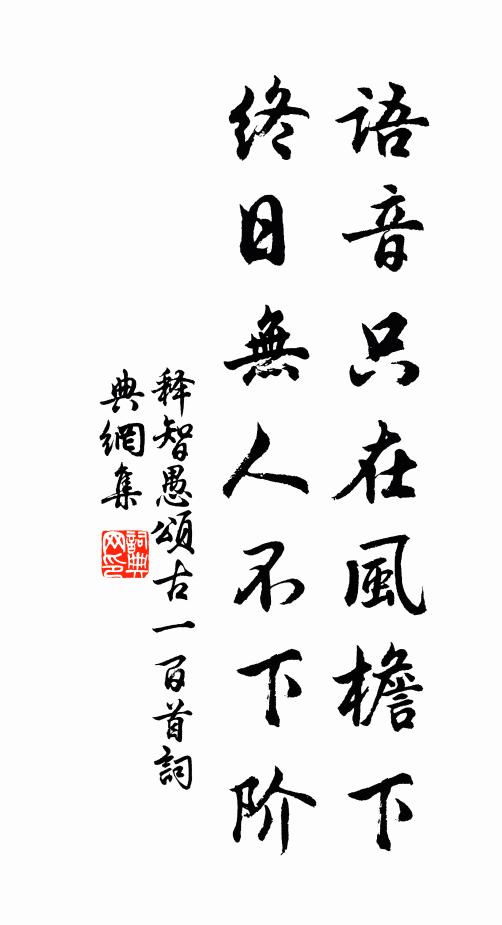 語音只在風檐下
終日無人不下阶
释智愚頌古一百首詞
典網集
詞典
网印